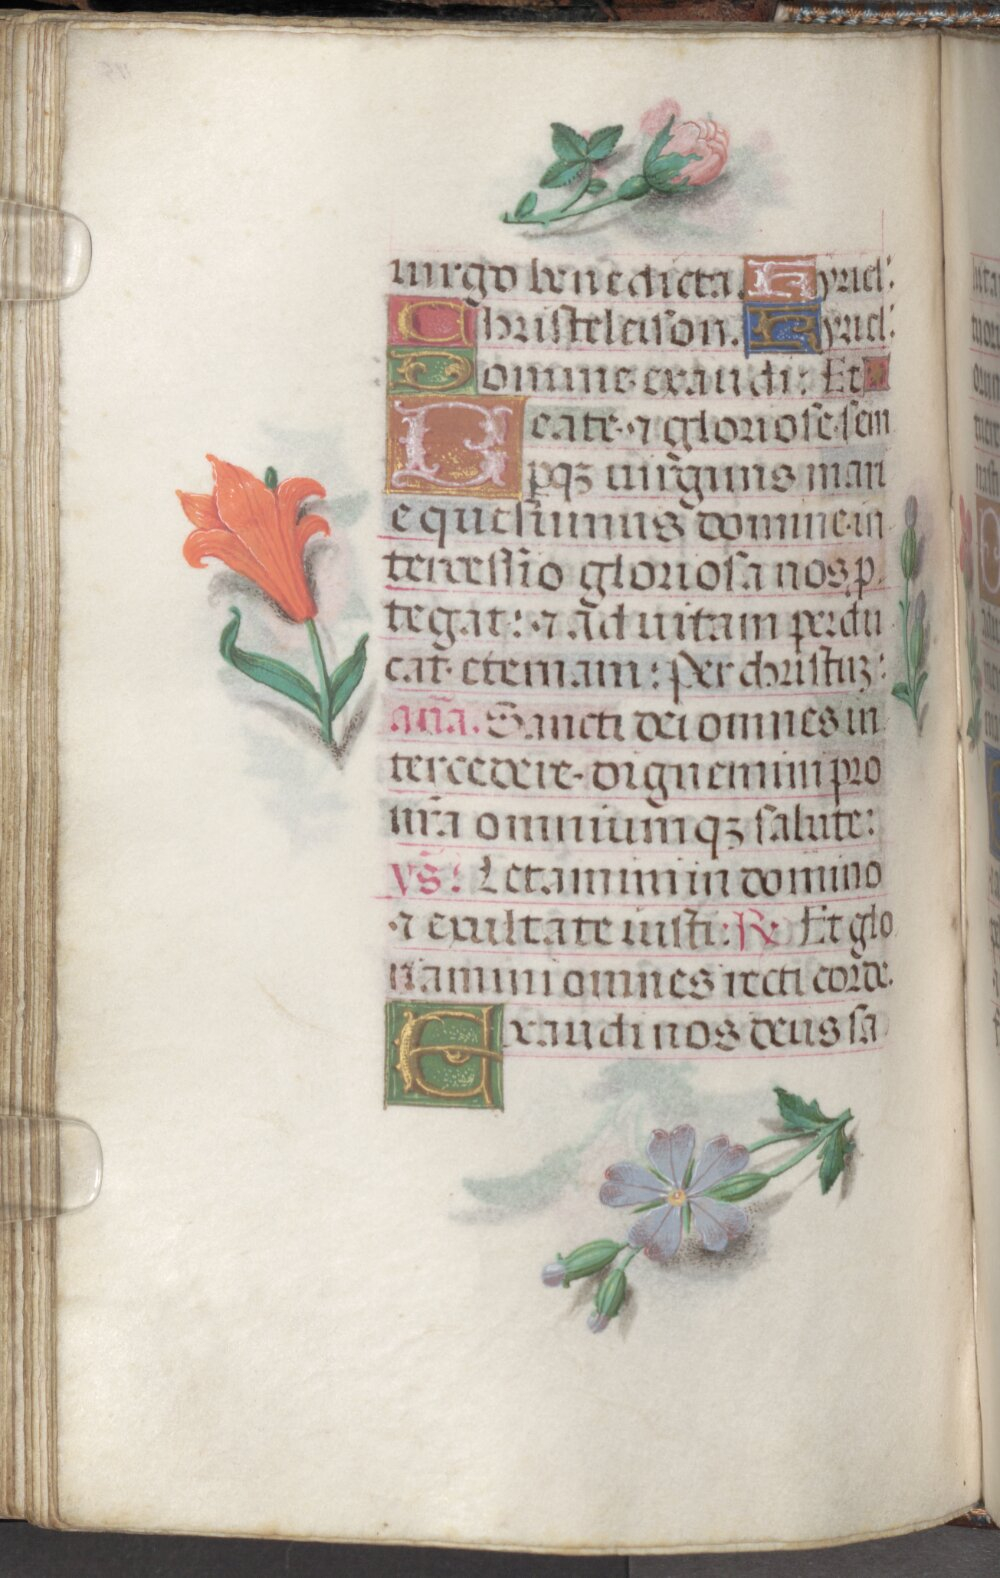 uirgo benedicta. Kyriel:
Christeleison. Kyriel:
Domine exaudi: Et
Beate ⁊ gloriose sem
ꝑqꝫ uirginis mari
e quesumus domine in
tercessio gloriosa nos ꝓ
tegat: ⁊ ad uitam perdu
cat eternam: Per christuꝫ:
añã. Sancti dei omnes in
tercedere dignemini pro
nr̃a omniumqꝫ salute:
vs̃: Letamini in domino
⁊ exultate iusti: ℟ Et glo
riamini omnes recti corde.
Exaudi nos deus sa